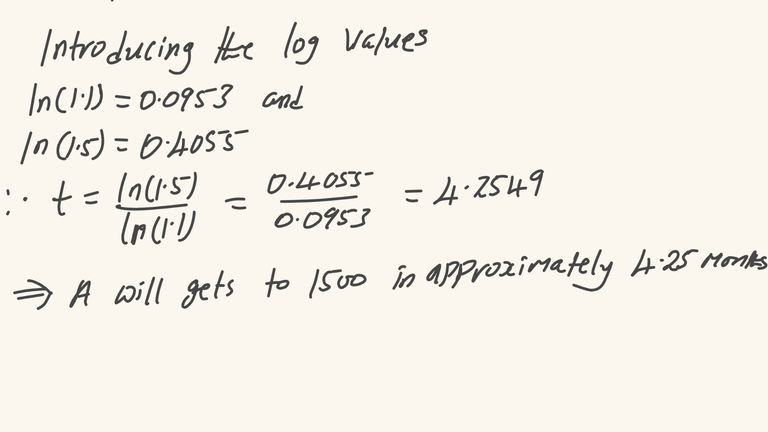 Introducing the log values
ln(1.1) = 0.0953 and
ln(1.5) = 0.4055
∴ t = ln(1.5)/ln(1.1) = 0.4055/0.0953 = 4.2549
⇒ A will gets to 1500 in approximately 4.25 Months